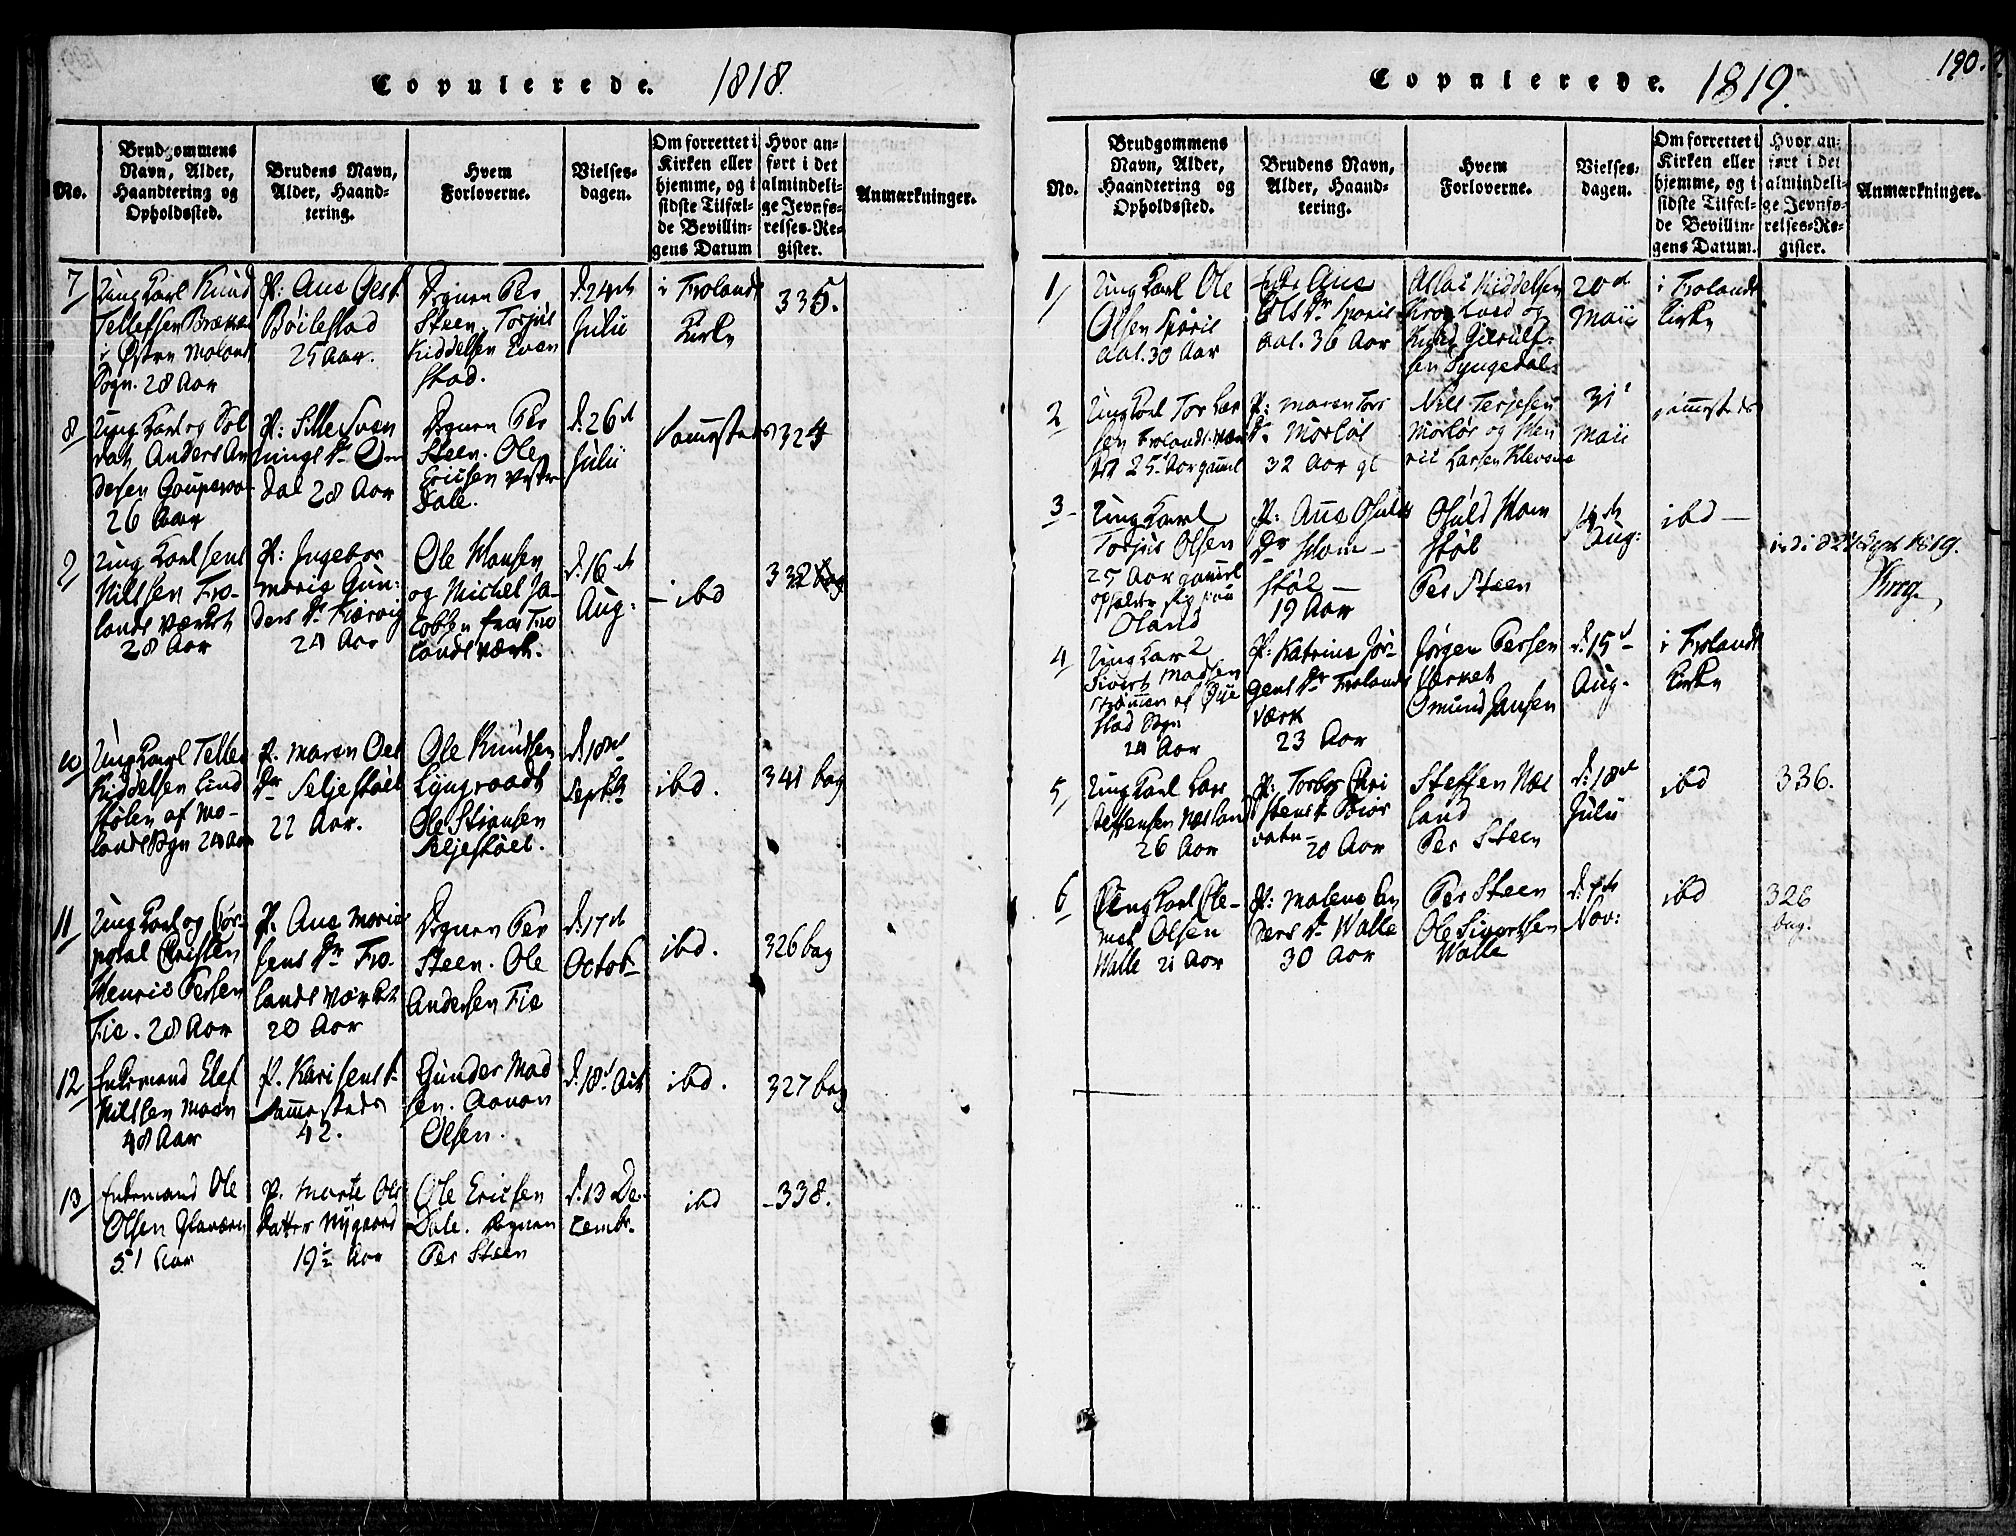 Copulerede. 1818.
No.
Brudgommens
Navn, Alder,
Haandtering og
Opholdssted.
Brudens Navn,
Alder, Haand-
tering.
Hvem
Forloverne.
Vielses-
dagen.
Om forrettet i
Kirken eller
hjemme, og i
sidste Tilfæl-
de Bevillin-
gens Datum
Hvor an-
ført i det
almindeli-
ge Jevnfø-
relses-Re-
gister.
Anmærkninger.
7
Ung Karl Knud
Tellefsen Brække
i Østre Moland
Sogn. 28 Aar
P: Ane Gest
Böilestad
25 Aar.
Degnen Per
Steen, Torjus
Kiddelsen Evens
stad.
d. 24de
Julii
i Frolands
Kirke
335.
8
Ung Karl og Sol
dat, Anders An
dersen Gauperaa
26 Aar
P: Sille Svæn
nings Dr Om
dal 28 Aar
Degnen Per
Steen. Ole
Ericsen Vestre
Dale.
d. 26de
Julii
sammesteds
324
9
Ung Karl Jens
Nilssen Fro-
lands værket
28 Aar
P: Ingebor
marie Gun-
ders Dr Kiærvig
24 Aar
Ole Hansen
og Michel Ja-
cobsen fra Fro
lands værk.
d. 16de
Aug:
- ibd
332 bag
10
Ung Karl Tellef
Kiddelsen Lind
stølen af Mo-
lands Sogn 24 Aar
P. Maren Ols
Dr Seljestøel
22 Aar.
Ole Knudsen
Lyngraadt
Ole Stiansen
Seljestøel.
d. 18de
Septbr
ibd.
341 bag
11
Ung Karl og Kor-
poral Christen
Henric Persen
Fie. 28 Aar
P. Ane Marie
Jens Dr Fro-
lands Værket
20 Aar
Degnen Per
Steen. Ole
Andersen Fie
d. 17de
Octob
ibd.
326 bag
12
Enkemand Elef
Nilssen Moen
48 Aar
P. Kari Jens Dr
Sammesteds
42.
Gunder Mad
sen. Aanon
Olsen.
d. 18de Oct
ibd.
327 bag
13
Enkemand Ole
Olsen
51 Aar
P. Marte Ols
Datter Nygaard
19½ Aar
Ole Ericsen
Dale. Degnen
Per Steen
d. 13 De-
cembr.
ibd
- 338.
Copulerede. 1819.
190.
No.
Brudgommens
Navn, Alder,
Haandtering og
Opholdssted.
Brudens Navn,
Alder, Haand-
tering.
Hvem
Forloverne.
Vielses-
dagen.
Om forrettet i
Kirken eller
hjemme, og i
sidste Tilfæl-
de Bevillin-
gens Datum.
Hvor an-
ført i det
almindeli-
ge Jevnfø-
relses-Re-
gister.
Anmærkninger.
1
Ung Karl Ole
Olsen Spöris
dal. 30 Aar
Ane
Ols Dr Sporis
dal. 36 Aar
Kiddelsen
og
Knud
20de
Maii
i Frolands
Kirke
2
Ung Karl Tor Lar
sen Frolands Vær
ket 25 Aar gamel
P: Maren Tors
Dr Morløs
32 Aar gl
Nils Terjesen
Morløs og Hen
ric Larsen
31
Maii
sammesteds
3
Ung Karl
Torjus Olsen
25 Aar gamel
opholder sig paa
Oland
P: Ane Osulds
Dr Hom-
støl -
19 Aar
Osuld Hom
støl
Per Steen
Aug:
ibd -
1819.
Krog
4
Ung Karl
Sivert Madsen
af Øie
stad Sogn
24 Aar
P: Katrine Jör-
gens Dr Frolands
Værk
23 Aar
Jörgen Persen
Værket
Omund Jansen
d. 15de
Aug.
i Frolands
Kirke
5
Ung Karl Lars
Steffensen Næsland
26 Aar
P: Torbor Chri
stens Dr Biör
vatn -
20 Aar
Steffen Næs
land
Per Steen
d: 18de
Julii
ibd
336.
6
Ung Karl Cle-
met Olsen
Walle 21 Aar
P: Malene An
ders Dr Walle
30 Aar
Per Steen
Ole Sivertsen
Walle
d. 7de
Nov:
ibd
326
bag.